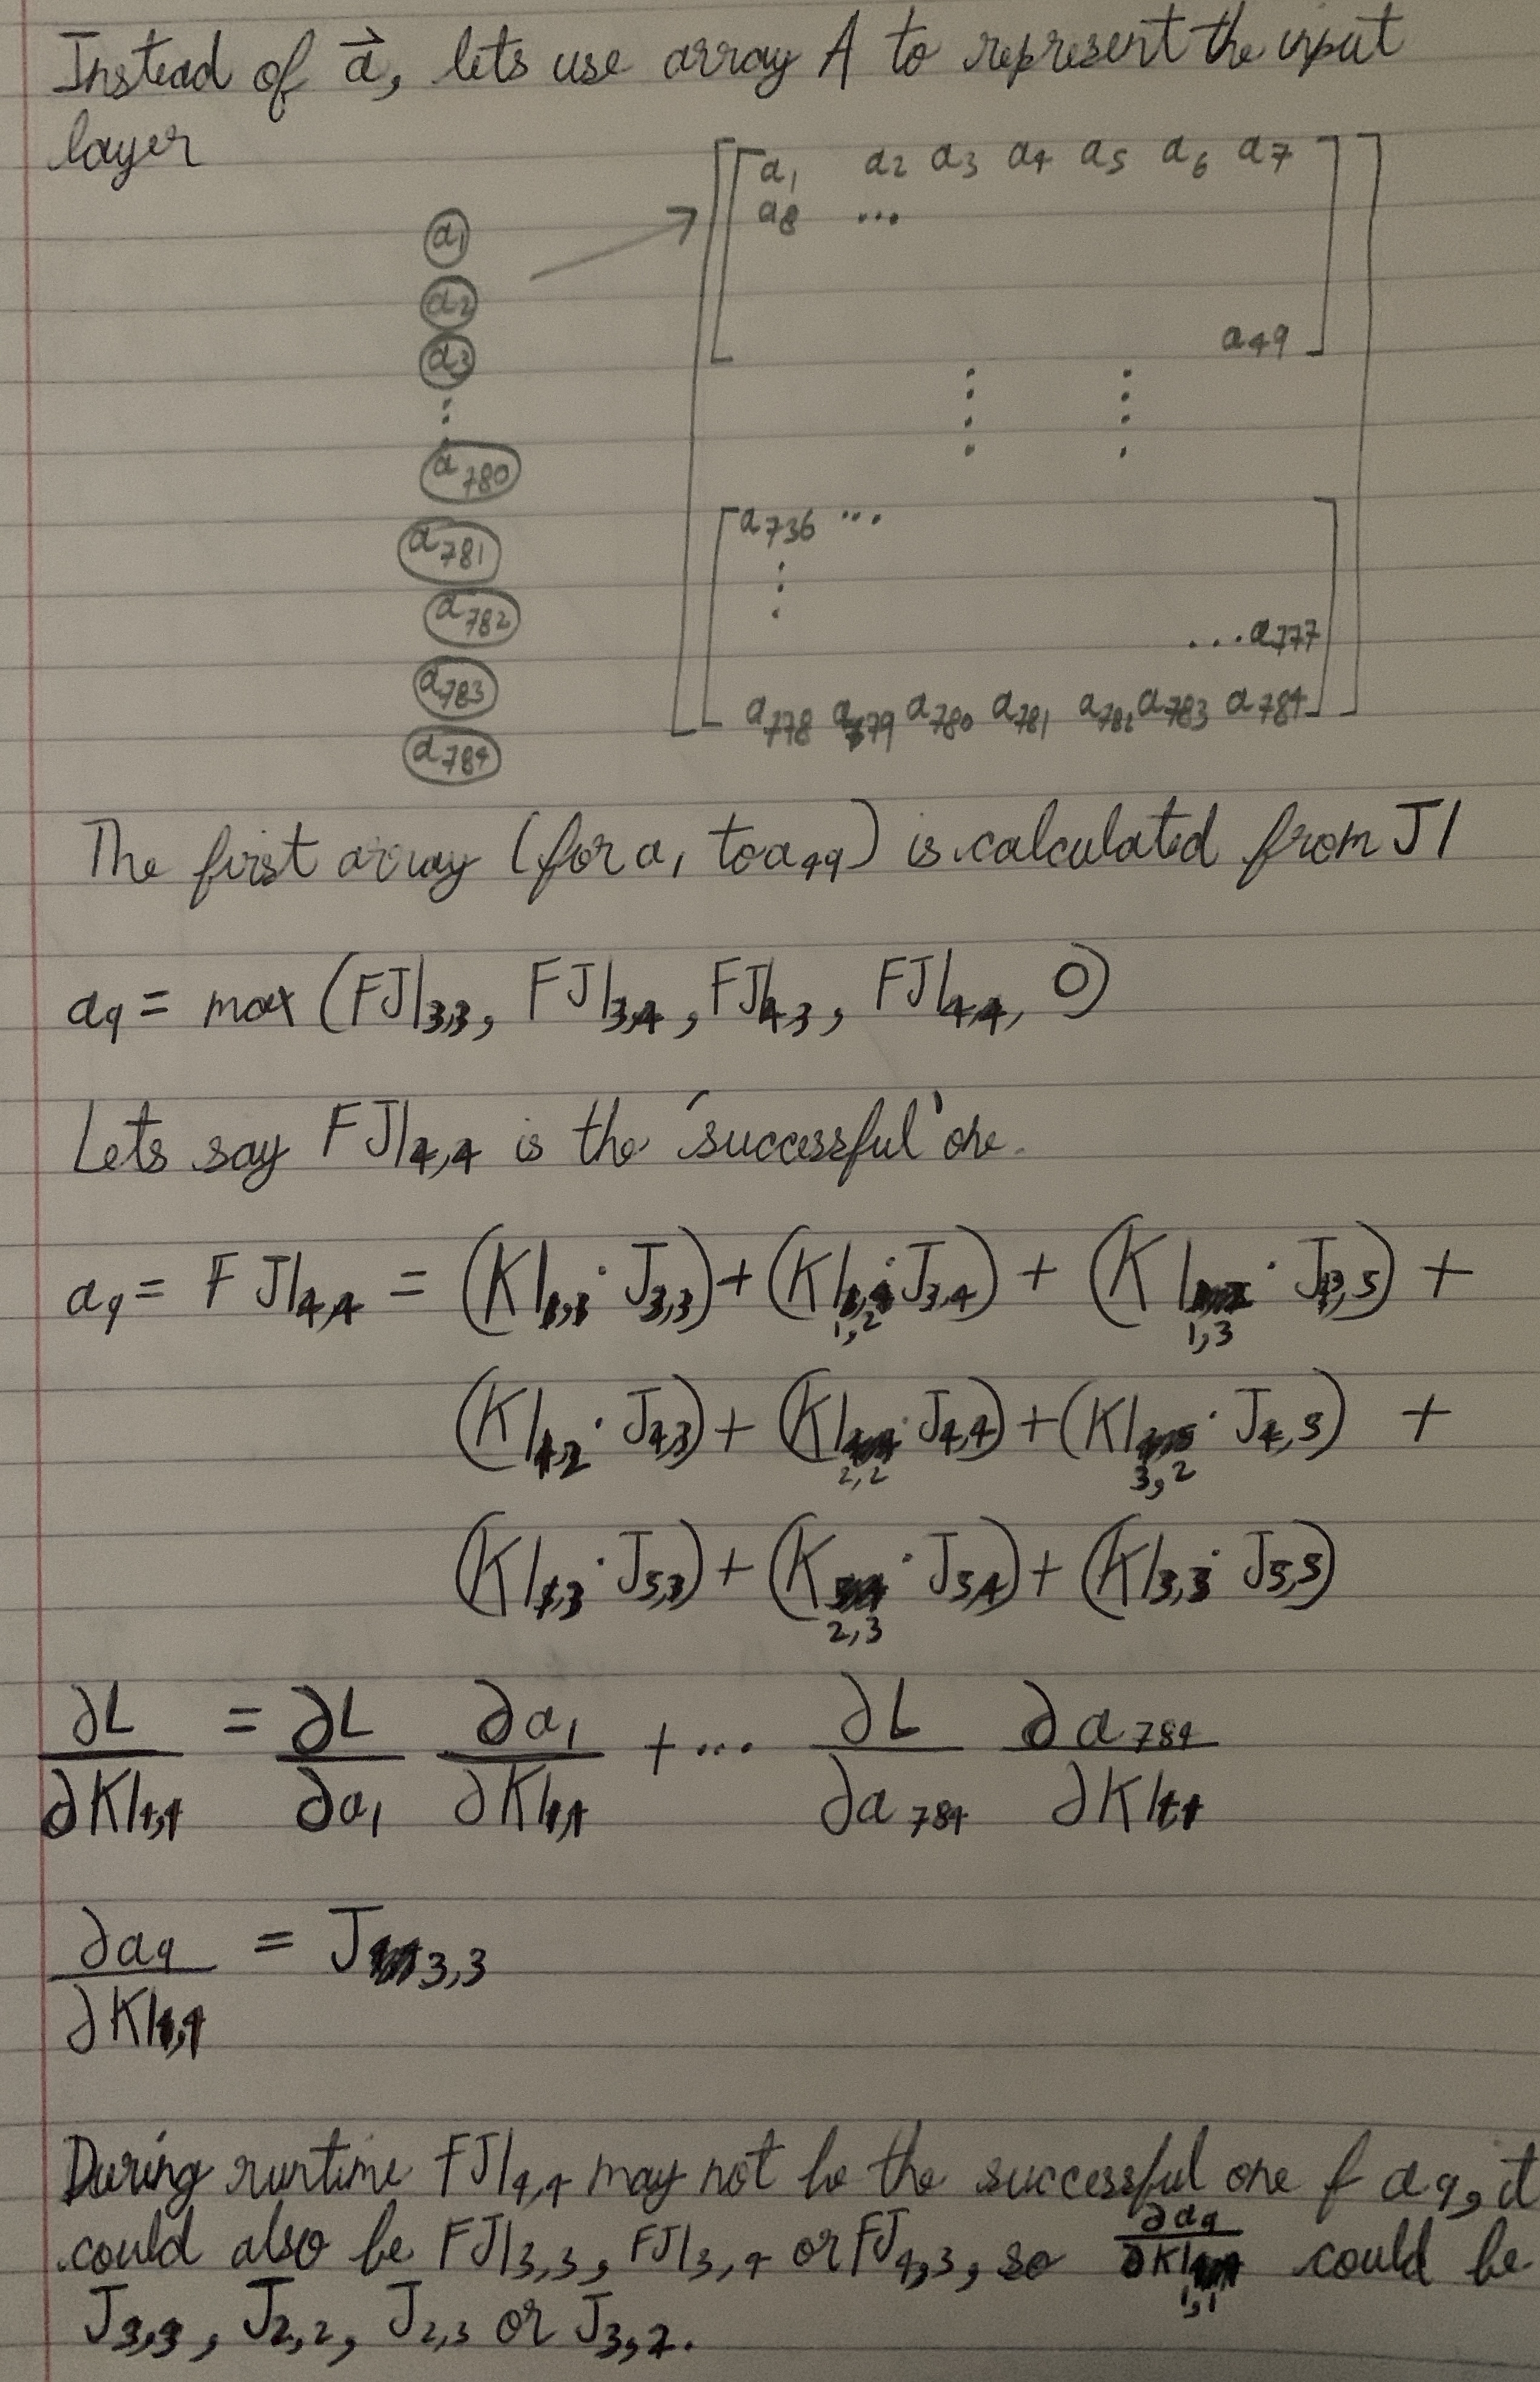 Instead of a⃗, lets use array A to represent the input
layer
a1 a2 a3 a4 a5 a6 a7
a8 ...
a49
a1
a2
a3
⋮
a780
a781
a782
a783
a784
a736 ...
... a777
a778 a779 a780 a781 a782 a783 a784
The first array (for a1 to a49) is calculated from J1
a9 = max (FJ1 3,3, FJ1 3,4, FJ1 4,3, FJ1 4,4, 0)
Lets say FJ1 4,4 is the 'successful' one.
a9 = FJ1 4,4 = (K1 1,1 · J3,3) + (K1 1,2 · J3,4) + (K1 1,3 · J3,5) +
(K1 1,2 · J4,3) + (K1 2,2 · J4,4) + (K1 3,2 · J4,5) +
(K1 1,3 · J5,3) + (K 2,3 · J5,4) + (K1 3,3 · J5,5)
∂L/∂K1 1,1 = ∂L/∂a1 ∂a1/∂K1 1,1 + ... ∂L/∂a784 ∂a784/∂K1 1,1
∂a9/∂K1 1,1 = J3,3
During runtime FJ1 4,4 may not be the successful one f a9, it
could also be FJ1 3,3, FJ1 3,4 or FJ4,3, so ∂a9/∂K1 1,1 could be
J3,3, J2,2, J2,3 or J3,2.